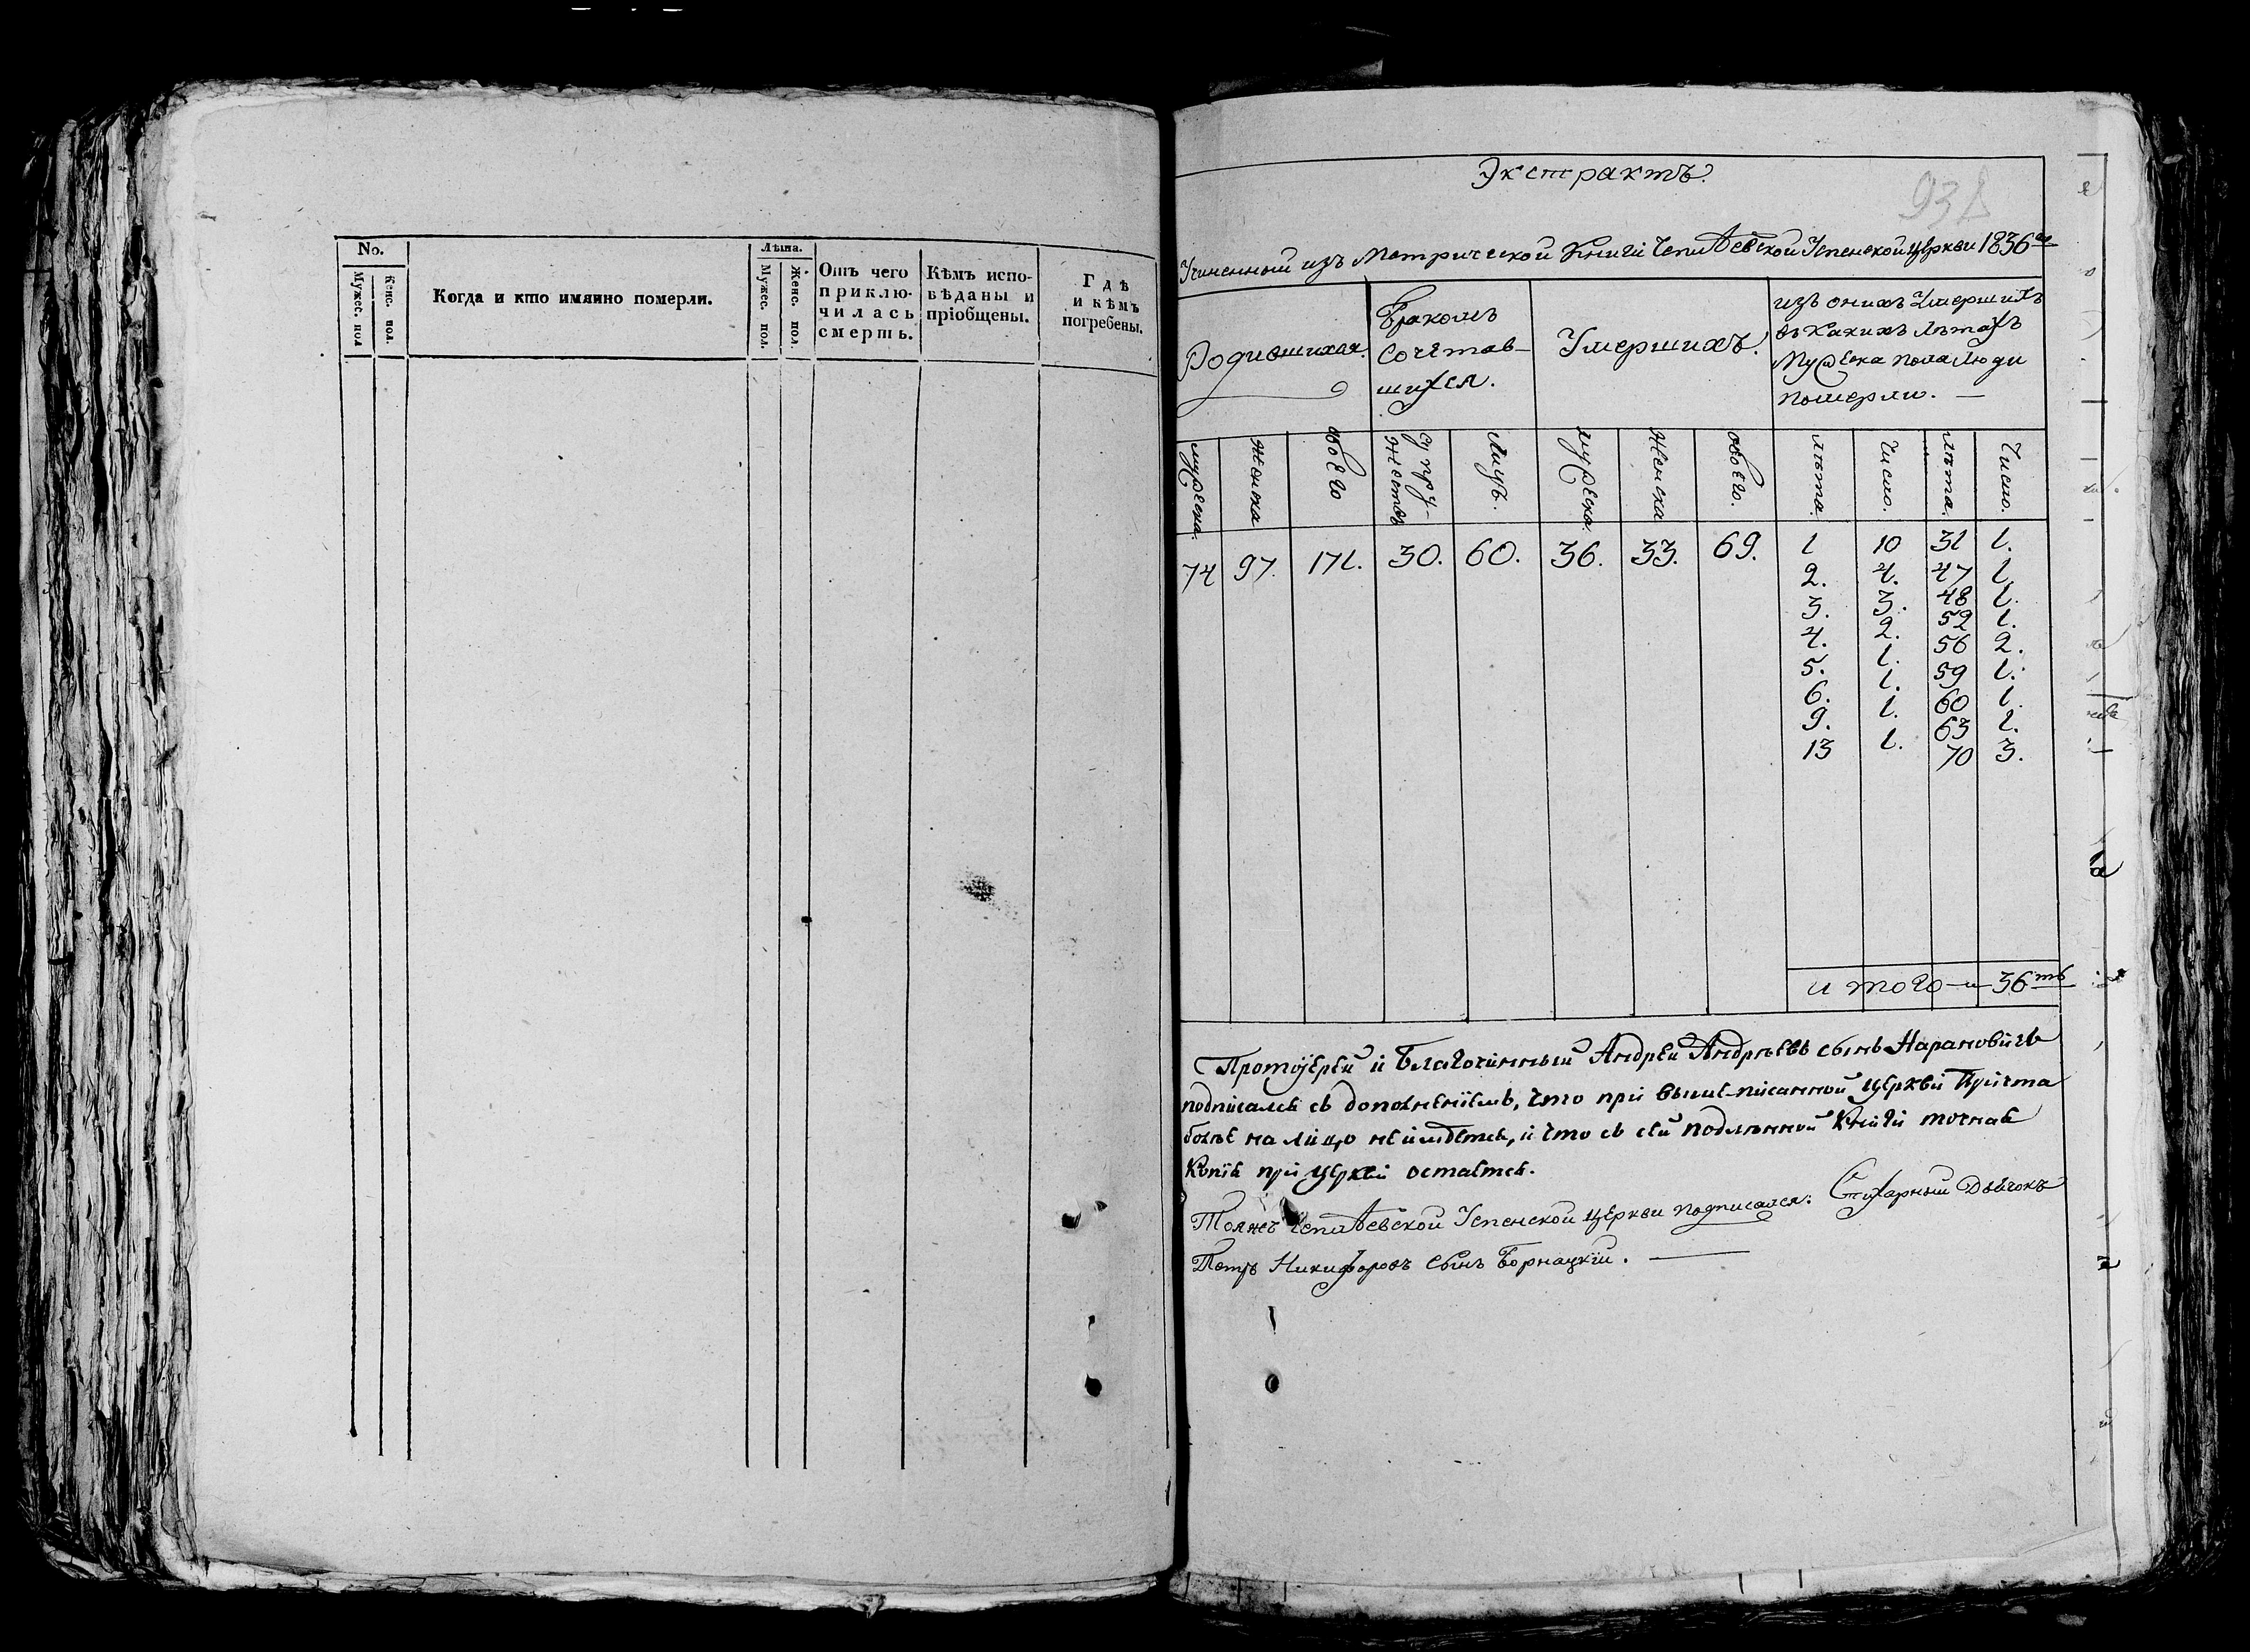 No.
Мужес. пол
Женс. пол.
Когда и кто имянно померли.
Лѣта.
Мужес. пол.
Женс. пол.
Отъ чего
приклю-
чилась
смерть.
Кѣмъ испо-
вѣданы и
пріобщены.
Гдѣ
и кѣмъ
погребены.
Экстрактъ.
Учиненный изъ Метрической Книги Успенской церкви 1836го
Родившихся.
Бракомъ
Сочетав-
шихся.
Умершихъ.
изъ онихъ Умершихъ
въ Какихъ Лѣтахъ
Мужеска пола Люди
померли. —
мужеска.
женска
обоего
супру-
жествъ
Лицъ.
мужеска.
Женска
обоего.
лѣта
Число.
лѣта.
Число.
74 97. 171. 30. 60. 36. 33. 69. 1 10 31 1.
2. 4. 47 1.
3. 3. 48 1.
4. 2. 52 1.
5. 1. 56 2.
6. 1. 59 1.
9. 1. 60 1.
13 1. 63 1.
70 3.
итого — 36ть
Протоіерей и Благочинный Андрей Андреевъ сынъ Нарановичъ
подписался съ дополненіемъ, что при выше-писанной церкви Причта
болѣе на лицо не имѣется, и что съ сей подлѣнной Книги точная
Копія при церкви остается.
Тояжъ Успенской церкви подписался: Стихарный Дьячокъ
Петръ Никифоровъ сынъ Борнацкій. —